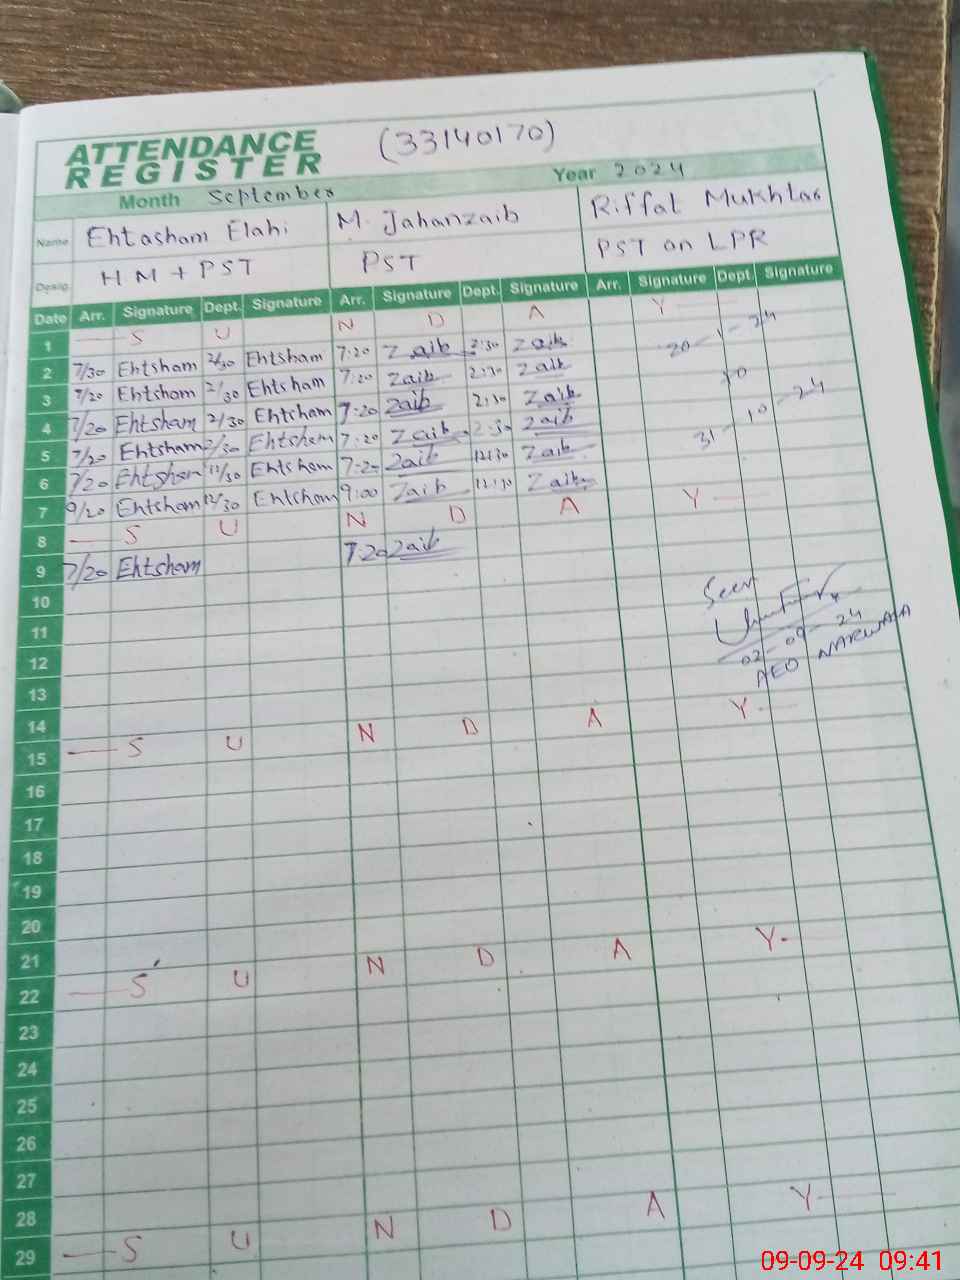 ATTENDANCE (33140170)
REGISTER
Month September Year 2024
Name Ehtasham Elahi M. Jahanzaib Riffat Mukhtar
Desig. HM + PST PST PST on LPR
Date Arr. Signature Dept. Signature Arr. Signature Dept. Signature Arr. Signature Dept. Signature
1 — S U N D A Y —
2 7/30 Ehtsham 2/30 Ehtsham 7:20 Zaib 2:30 Zaib 20-1-24
3 7/20 Ehtsham 2/30 Ehtsham 7:20 Zaib 2:30 Zaib to
4 7/20 Ehtsham 2/30 Ehtsham 7:20 Zaib 2:30 Zaib 31-10-24
5 7/20 Ehtsham 2/30 Ehtsham 7:20 Zaib 2:30 Zaib
6 7/20 Ehtsham 12/30 Ehtsham 7:20 Zaib 12:30 Zaib
7 9/20 Ehtsham 12/30 Ehtsham 9:00 Zaib 12:30 Zaib
8 — S U N D A Y —
9 7/20 Ehtsham 7:20 Zaib
10
Seen
11
02-09-24
12
AEO NARWALA
13
14
15 — S U N D A Y -
16
17
18
19
20
21
22 — S U N D A Y -
23
24
25
26
27
28
29 — S U N D A Y —
09-09-24 09:41